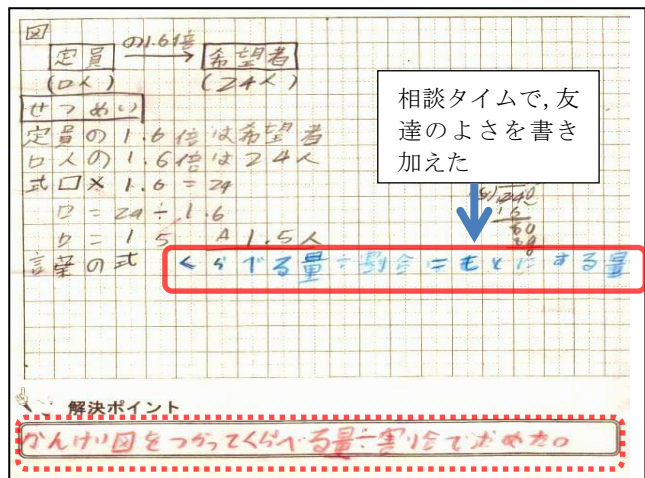 図
定員 の1.6倍 希望者
(□人) (24人)
せつめい
定員の1.6倍は希望者
□人の1.6倍は24人
式□×1.6=24
□=24÷1.6
□=15 A15人
言葉の式 くらべる量÷割合=もとにする量
相談タイムで,友
達のよさを書き
加えた
解決ポイント
かんけい図をつかってくらべる量÷割合で求めた。